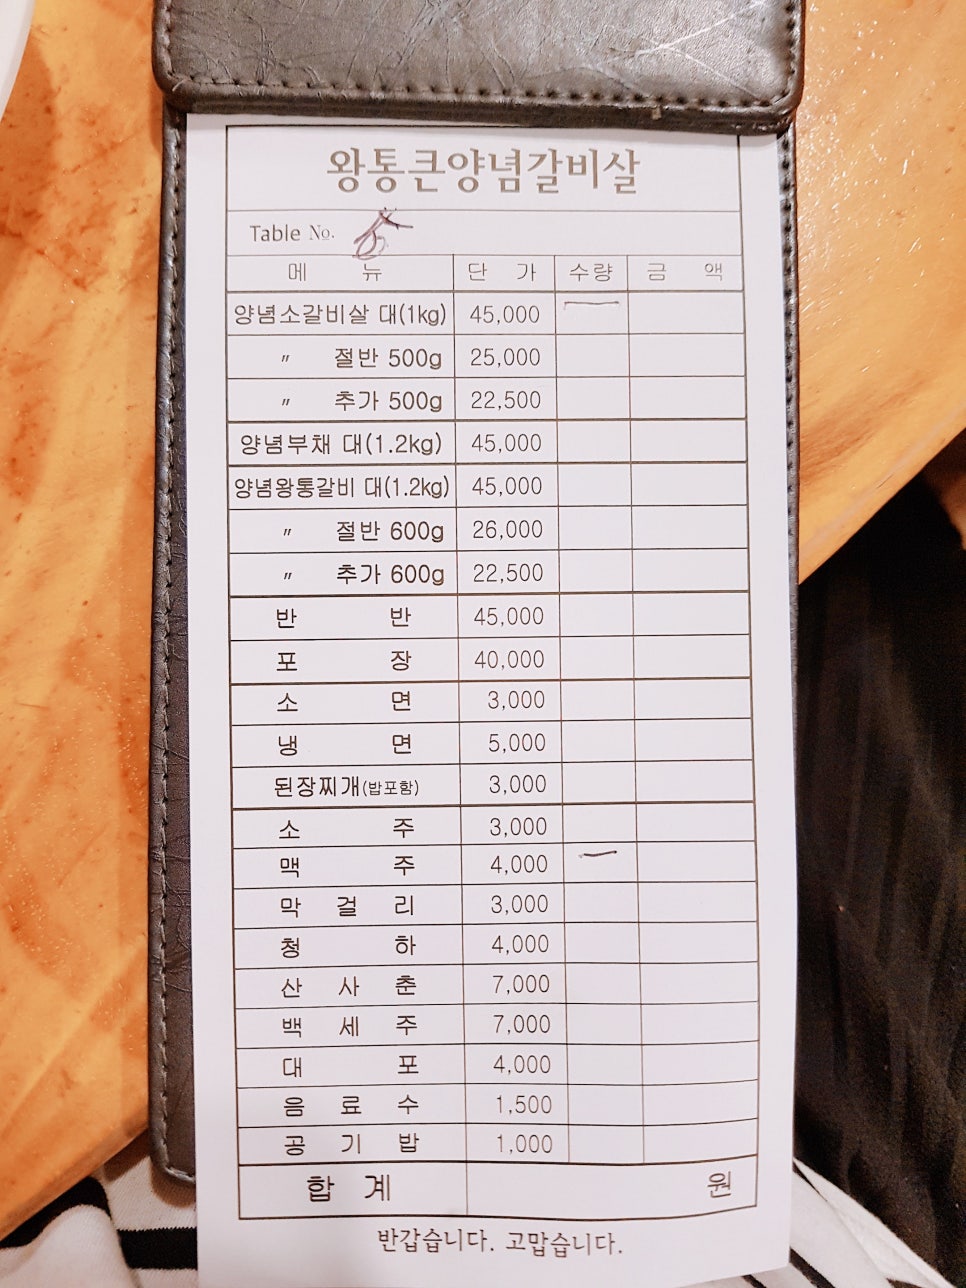 왕통큰양념갈비살
Table No.
메 뉴 단 가 수량 금 액
양념소갈비살 대(1kg) 45,000 一
〃 절반 500g 25,000
〃 추가 500g 22,500
양념부채 대(1.2kg) 45,000
양념왕통갈비 대(1.2kg) 45,000
〃 절반 600g 26,000
〃 추가 600g 22,500
반 반 45,000
포 장 40,000
소 면 3,000
냉 면 5,000
된장찌개(밥포함) 3,000
소 주 3,000
맥 주 4,000 一
막 걸 리 3,000
청 하 4,000
산 사 춘 7,000
백 세 주 7,000
대 포 4,000
음 료 수 1,500
공 기 밥 1,000
합 계 원
반갑습니다. 고맙습니다.